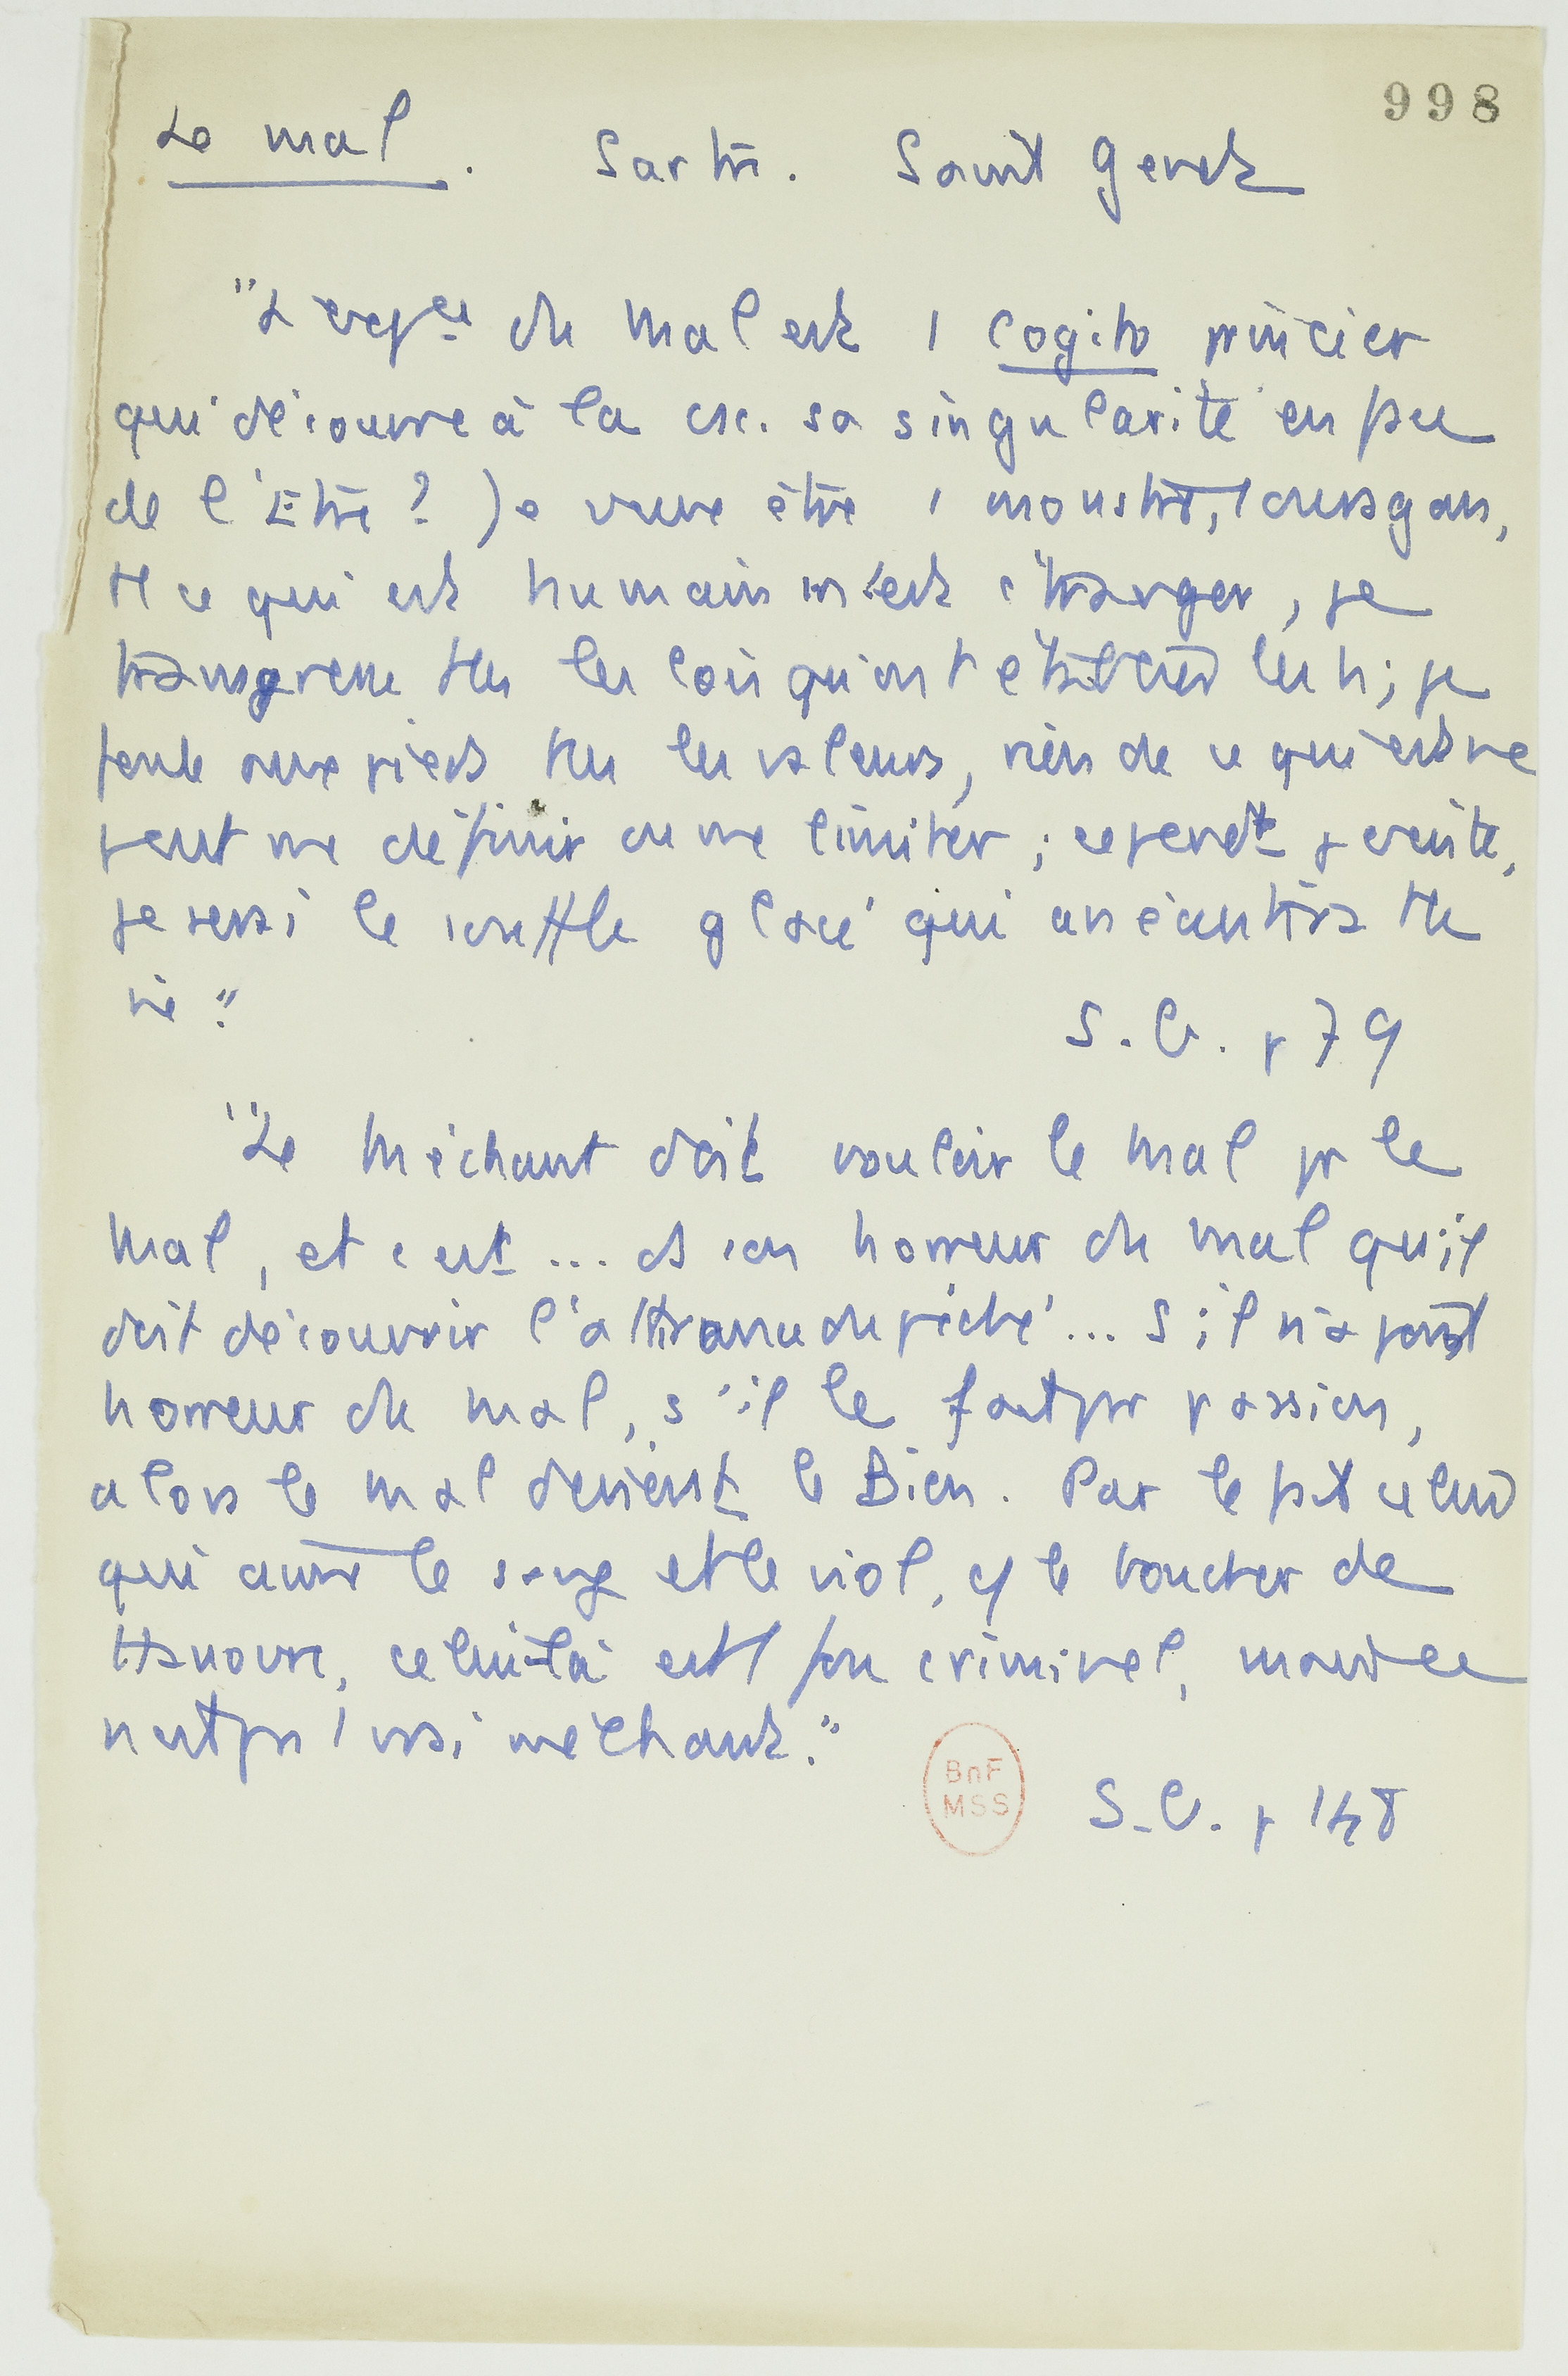 998
Le mal. Sartre. Saint Genet
"L'expce du Mal est 1 cogito princier
qui découvre à la csc. sa singularité en face
de l'Etre ? Je veux être 1 monstre, 1 ouragan,
tt ce qui est humain m'est étranger, je
transgresse ttes les lois qu'ont établies les h ; je
foule aux pieds ttes les valeurs, rien de ce qui est ne
peut me définir ou me limiter ; cependt j'existe,
je serai le souffle glacé qui anéantira tte
vie."
S.G. p 79
"Le Méchant doit vouloir le Mal pr le
Mal, et c'est ... ds son horreur du mal qu'il
doit découvrir l'attirance du péché ... S'il n'a point
horreur du Mal, s'il le fait par passion,
alors le Mal devient le Bien. Par le fait celui
qui aime le sang et le viol, cf le boucher de
Hanovre, celui-là est 1 fou criminel, mais ce
n'est pas 1 vrai méchant."
BnF
MSS
S.G. p 148